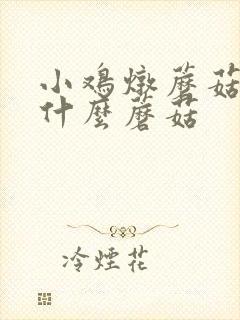 小鸡燉蘑菇
什麼蘑菇
冷煙花